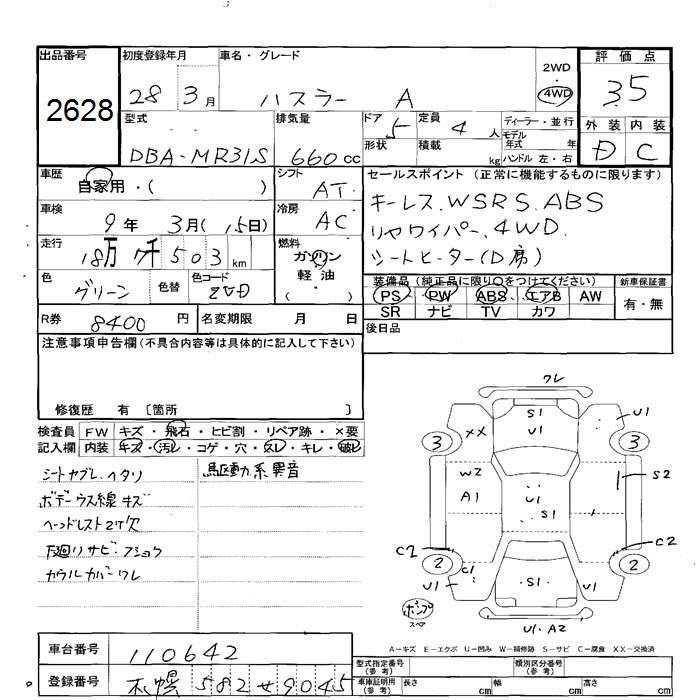 出品番号
2628
初度登録年月
28 3月
車名・グレード
ハスラー A
2WD
4WD
評価点
3.5
外装 内装
D C
型式
DBA-MR31S
排気量
660cc
ドア 5
形状
定員 4 人
積載 kg
ディーラー・並行
モデル年式 年
ハンドル 左・右
車歴
自家用・( )
車検
9年 3月(15日)
走行
18万7千503km
色
グリーン
色替
色コード
ZVD
シフト
AT
冷房
AC
燃料
ガソリン
軽油
( )
セールスポイント(正常に機能するものに限ります)
キーレス.WSRS.ABS
リヤワイパー.4WD.
シートヒーター(D席)
装備品(純正品に限り○をつけてください)
PS PW ABS エアB AW
SR ナビ TV カワ
新車保証書
有・無
R券 8400円
名変期限 月 日
後日品
注意事項申告欄(不具合内容等は具体的に記入して下さい)
修復歴 有 〔箇所 〕
検査員記入欄
FW キズ・飛石・ヒビ割・リペア跡・×要
内装 キズ・汚レ・コゲ・穴・スレ・キレ・破レ
シートヤブレ.ヘタリ
ボデーウス線キズ
ヘッドレスト2ケ欠
下廻りサビ・フショク
カウルカバーワレ
駆動系異音
ワレ
S1
U1
U1
XX
3
3
W2
A1
U1
S1
S2
C2
C2
2
2
C1
U1
S1
U1
ポンプ
スペア
U1.A2
A−キズ E−エクボ U−凹み W−補修跡 S−サビ C−腐食 XX−交換済
車台番号
110642
登録番号
札幌 582 せ 9045
型式指定番号(参考)
類別区分番号(参考)
車庫証明用(参考)
長さ cm
幅 cm
高さ cm